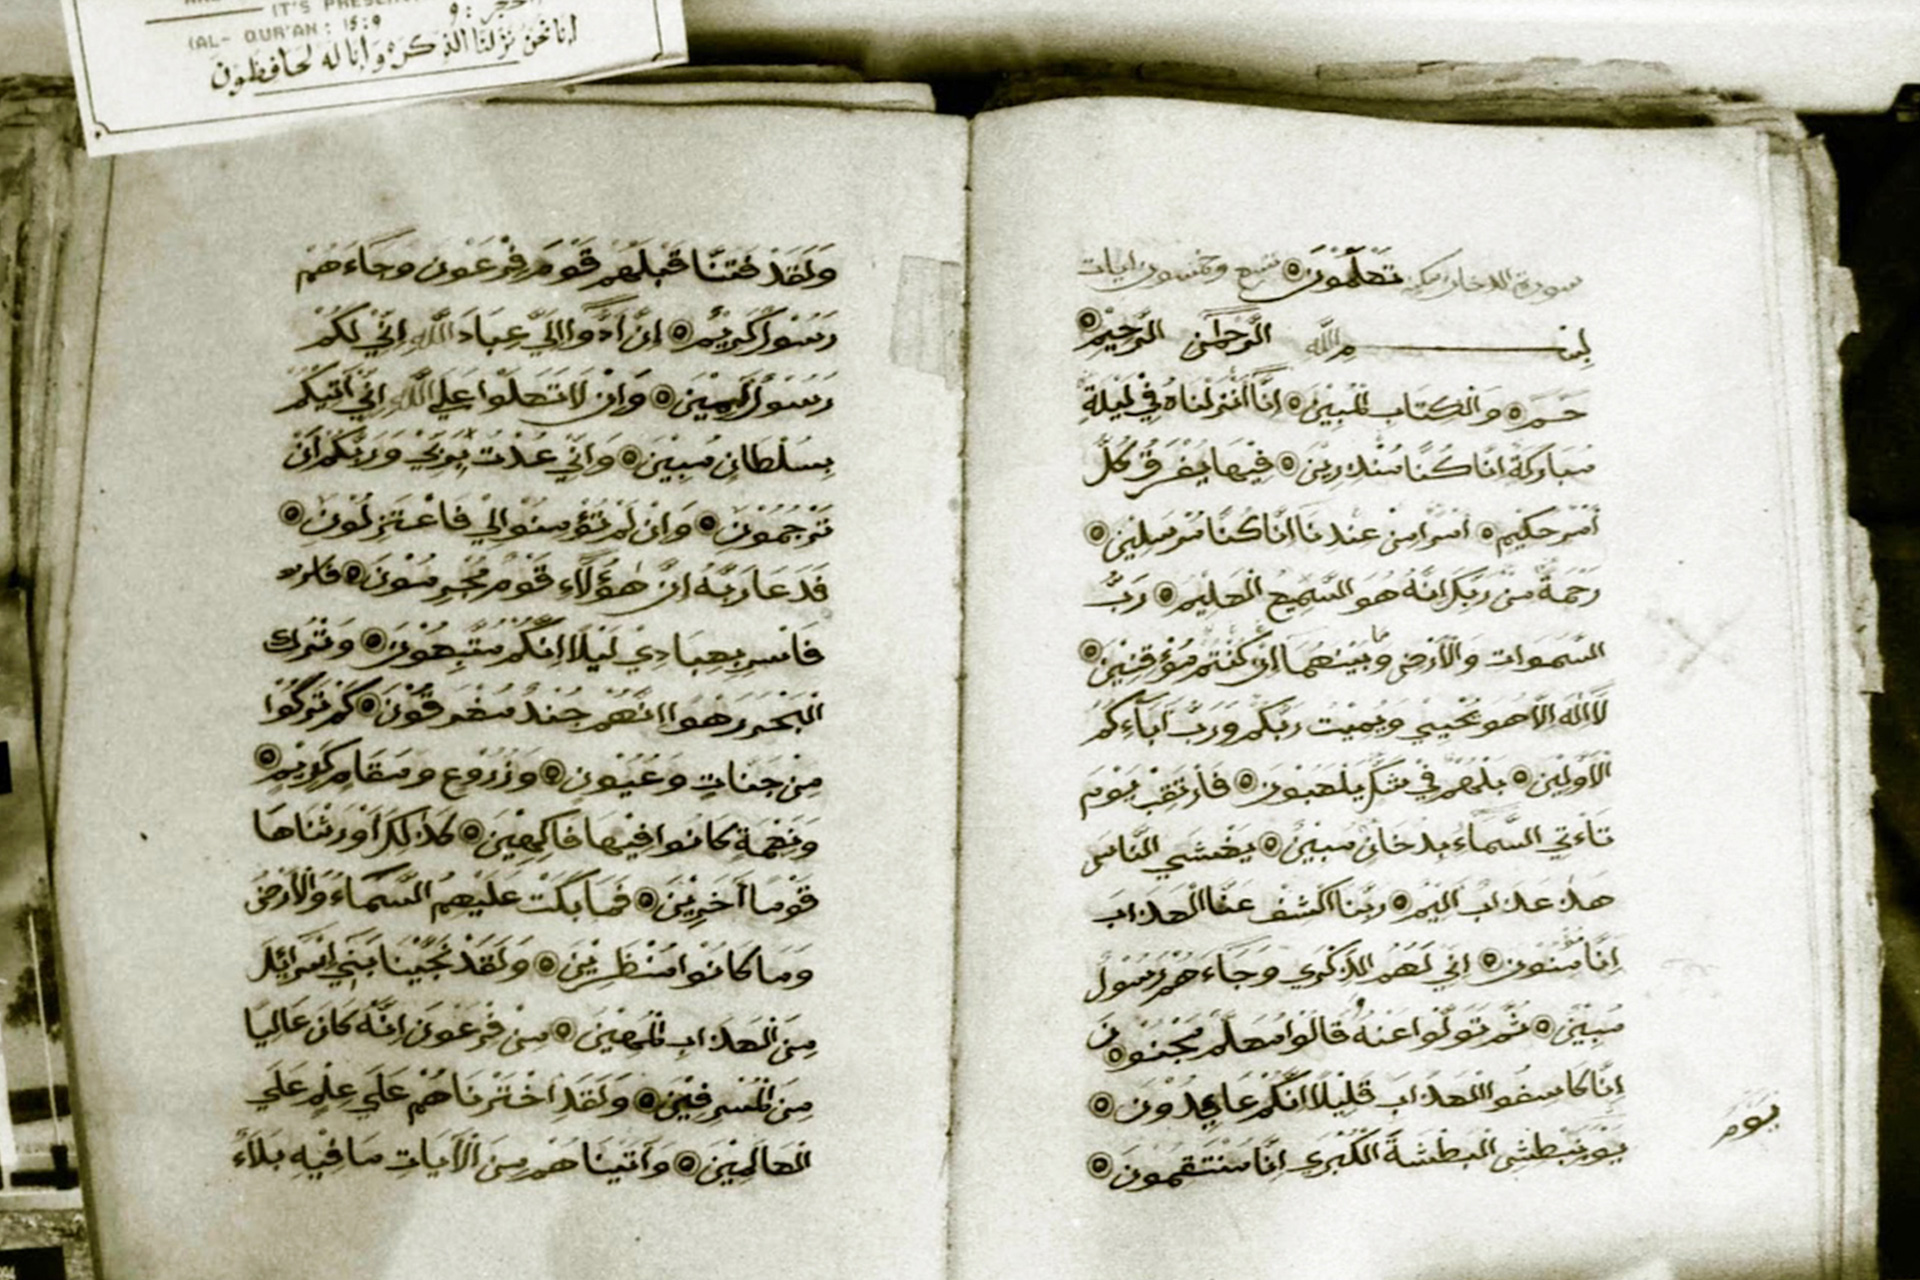 IT'S PRESER
(AL- QUR'AN: 15:9
الحجر: ٩
إنا نحن نزلنا الذكر وإنا له لحافظون
سورة الدخان مكية تعلمون تسع وخمسون ايات
بسم الله الرحمن الرحيم
حم والكتاب المبين إنا أنزلناه في ليلة
مباركة إنا كنا منذرين فيها يفرق كل
أمر حكيم أمرا من عندنا إنا كنا مرسلين
رحمة من ربك إنه هو السميع العليم رب
السموات والأرض وما بينهما إن كنتم موقنين
لا اله إلا هو يحيي ويميت ربكم ورب آباءكم
الأولين بل هم في شك يلعبون فارتقب يوم
تأتي السماء بدخان مبين يغشي الناس
هذا عذاب اليم ربنا اكشف عنا العذاب
إنا مؤمنون اني لهم الذكري وجاءهم رسول
مبين ثم تولوا عنه وقالوا معلم مجنون
إنا كاشفوا العذاب قليلا انكم عايدون
يوم نبطش البطشة الكبري إنا منتقمون
يوم
ولقد فتنا قبلهم قوم فرعون وجاءهم
رسول كريم إن أدوا إلي عباد الله إني لكم
رسول أمين وان لا تعلوا علي الله اني آتيكم
بسلطان مبين واني عذت بربي وربكم أن
ترجمون وان لم تؤمنوا لي فاعتزلون
فدعا ربه ان هؤلاء قوم مجرمون
فاسر بعبادي ليلا انكم متبعون وتترك
البحر رهوا انهم جند مغرقون كم تركوا
من جنات وعيون وزروع ومقام كريم
ونعمة كانوا فيها فاكهين كذلك وأورثناها
قوما آخرين فما بكت عليهم السماء والأرض
وما كانوا منظرين ولقد نجينا بني إسرائل
من العذاب المهين من فرعون إنه كان عاليا
من المسرفين ولقد اخترناهم علي علم علي
العالمين وآتيناهم من الآيات ما فيه بلاء